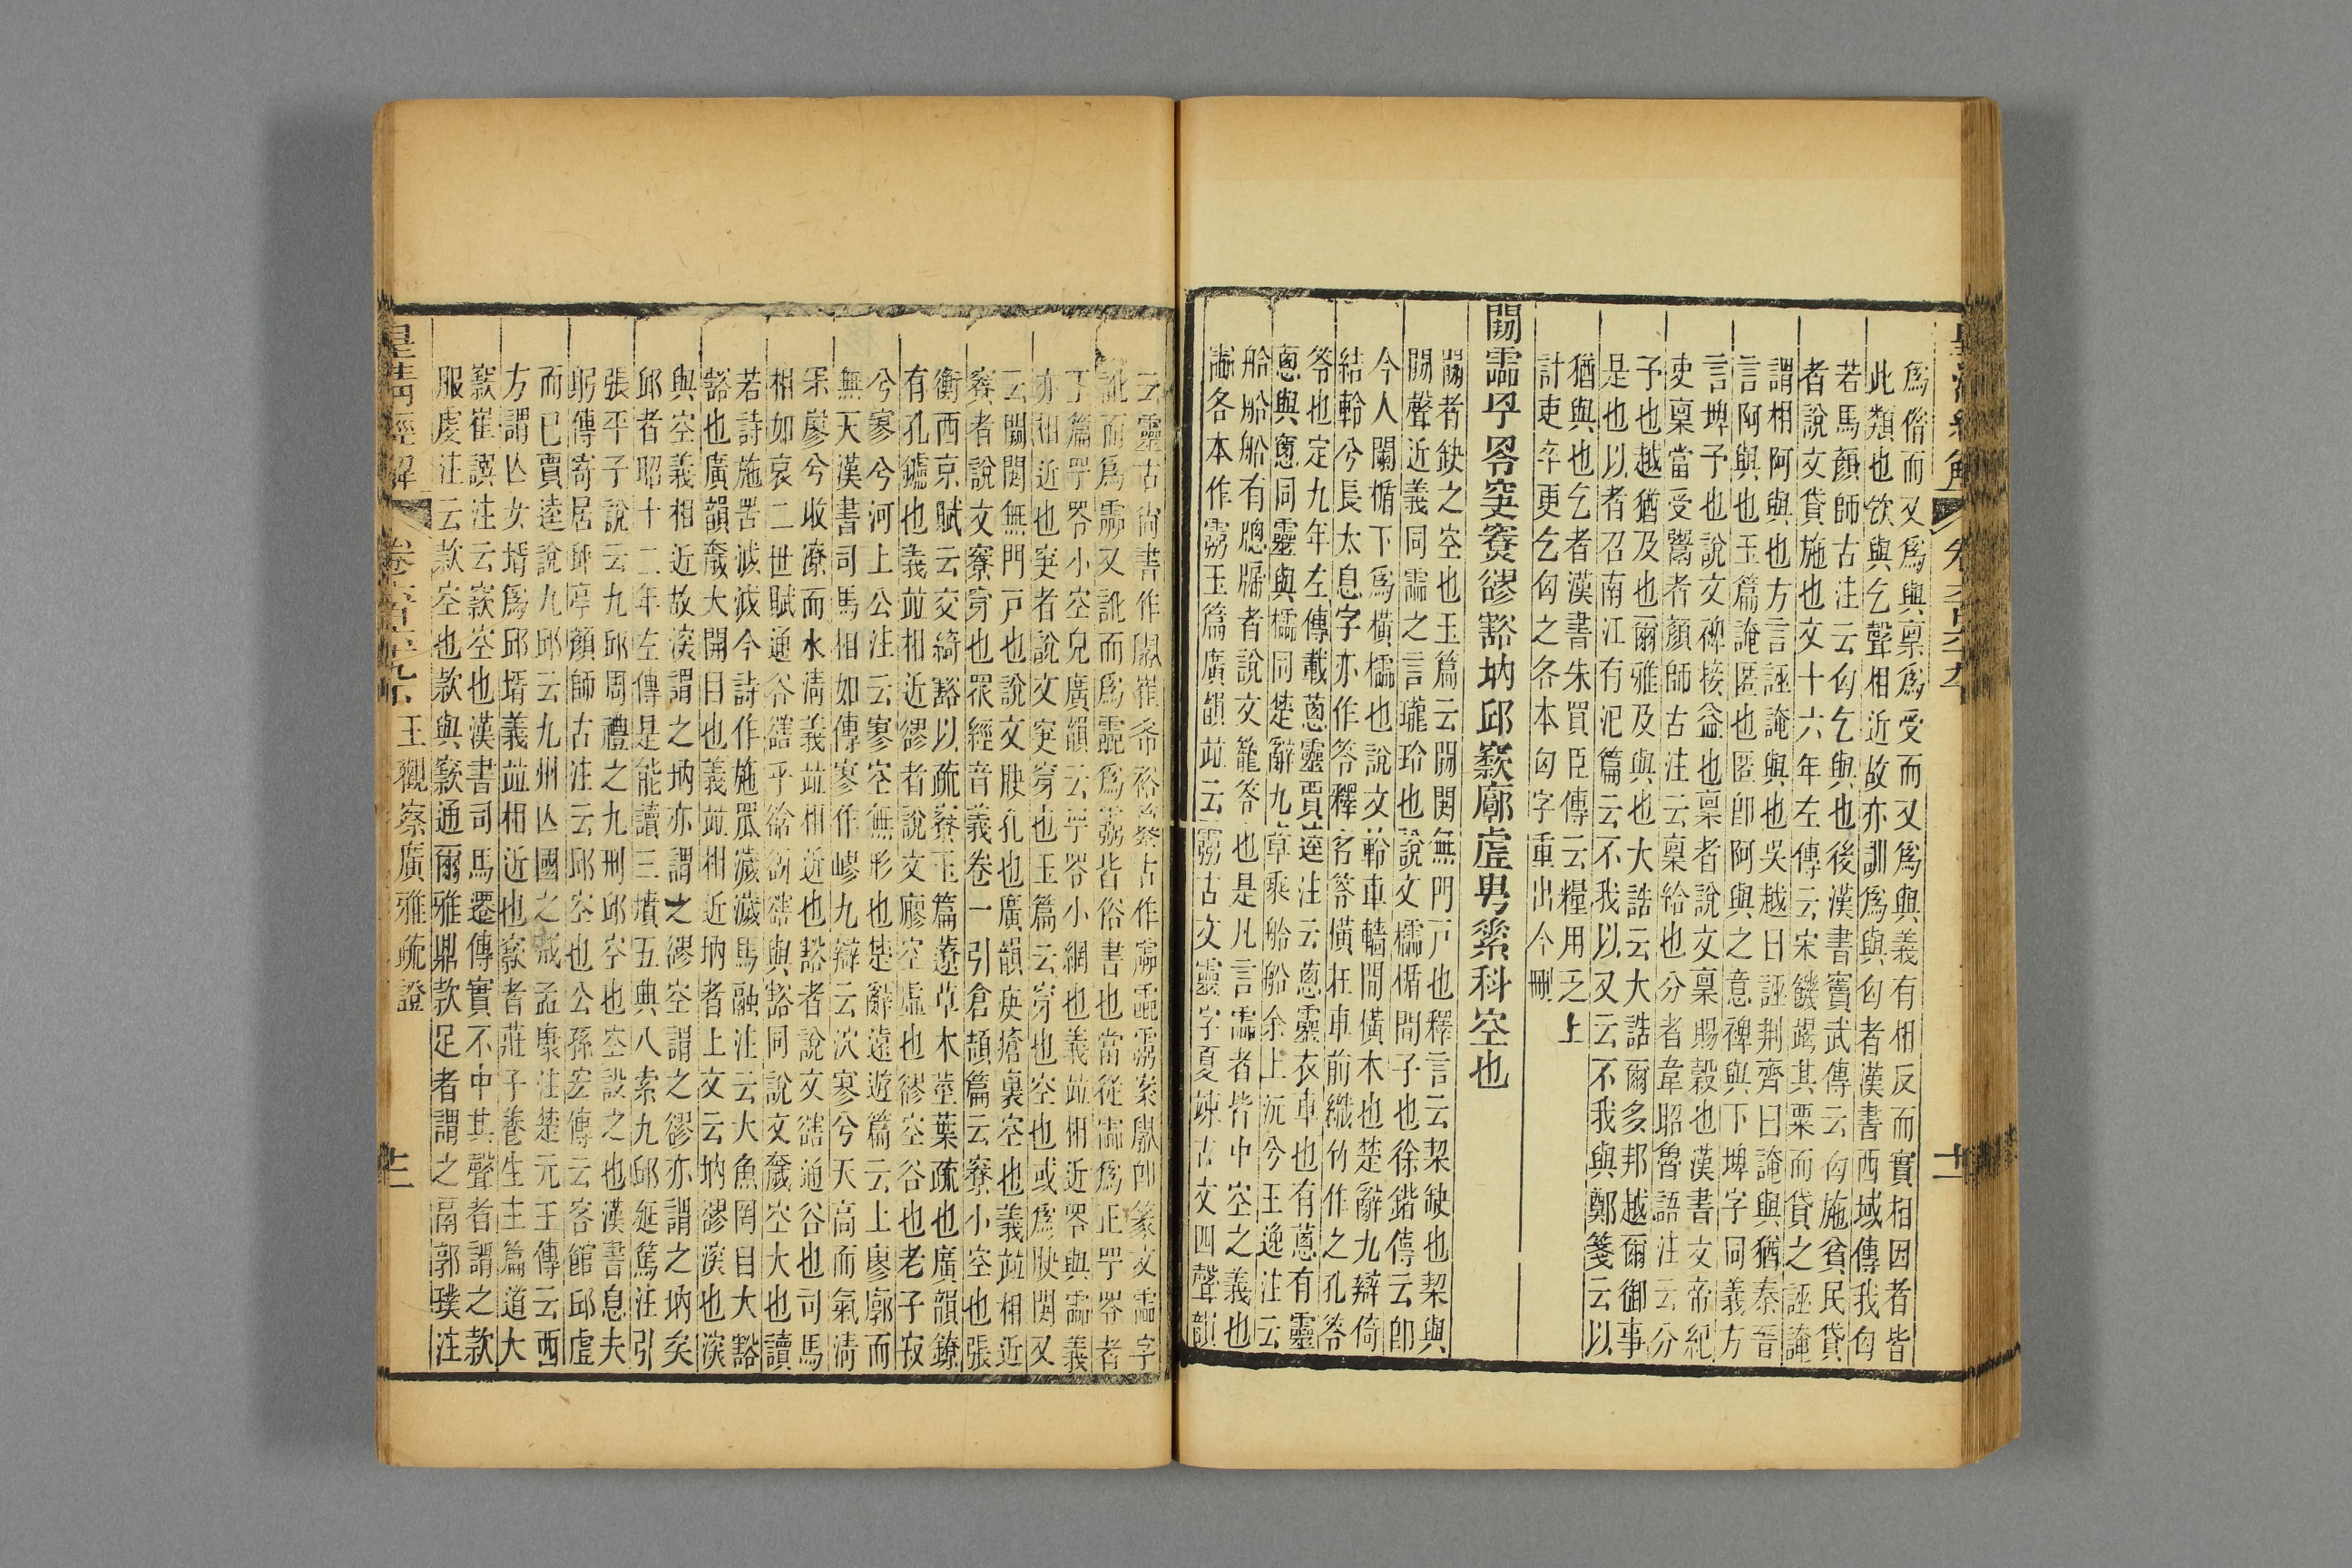 爲借而又爲與稟爲受而又爲與義有相反而實相因者皆
此類也㰟與乞聲相近故亦訓爲與匃者漢書西域傳我匃
若馬顏師古注云匃乞與也後漢書竇武傳云匃施貧民貸
者說文貸施也文十六年左傳云宋饑竭其粟而貸之誣諵
謂相阿與也方言誣諵與也吳越曰誣荆齊曰諵與猶秦晉
言阿與也玉篇諵匿也匿卽阿與之意裨與下埤字同義方
言埤予也說文裨接益也稟者說文稟賜穀也漢書文帝紀
吏稟當受鬻者顏師古注云稟給也分者韋昭魯語注云分
予也越猶及也爾雅及與也大誥云大誥爾多邦越爾御事
是也以者召南江有汜篇云不我以又云不我與鄭箋云以
猶與也乞者漢書朱買臣傳云糧用乏上
計吏卒更乞匃之各本匃字重出今刪
科空也
闕者缺之空也玉篇云闕閌無門戶也釋言云契缺也契與
聲近義同之言瓏玲也說文楯間子也徐鍇傳云卽
今人闌楯下爲橫櫺也說文軨車轖間橫木也楚辭九辯倚
結軨兮長太息字亦作笭釋名笭橫在車前織竹作之孔笭
笭也定九年左傳載蔥靈賈逵注云蔥靈衣車也有蔥有靈
蔥與蔥同靈與櫺同楚辭九章乘舲船余上沅兮王逸注云
舲船船有牕牖者說文籠笭也是凡言者皆中空之義也
各本作玉篇廣韻竝云古文靈字夏竦古文四聲韻
云靈古尚書作崔希裕纂古作案卽篆文字
訛而爲又訛而爲皆俗書也當從爲正者
丁篇小空皃廣韻云小網也義竝相近與義
亦相近也穾者說文穾穿也玉篇云穿也空也或爲閌又
云闕閌無門戶也說文孔也廣韻瘡裏空也義竝相近
寮者說文寮穿也眾經音義卷一引倉頡篇云寮小空也張
衡西京賦云交綺豁以疏寮玉篇藔草木莖葉疏也廣韻鐐
有孔鑪也義竝相近者說文廫空虛也空谷也老子寂
兮寥兮河上公注云寥空無形也楚辭遠遊篇云上廖廓而
無天漢書司馬相如傳寥作嵺九辯云泬寥兮天高而氣淸
寥兮收潦而水淸義竝相近也豁者說文通谷也司馬
相如哀二世賦通谷乎谽谺與豁同說文奯空大也讀
若詩施罟濊濊今詩作施罛濊濊馬融注云大魚罔目大豁
豁也廣韻奯大開目也義竝相近坎者上文云坎漻深也深
與空義相近故深謂之坎亦謂之漻空謂之漻亦謂之坎矣
邱者昭十二年左傳是能讀三墳五典八索九邱延篤注引
張平子說云九邱周禮之九刑邱空也空設之也漢書息夫
躬傳寄居邱亭顏師古注云邱空也公孫宏傳云客館邱虛
而已賈逵說九邱云九州亡國之戒孟康注楚元王傳云西
方謂亡女壻爲邱壻義竝相近也窾者莊子養生主篇道大
窾崔譔注云窾空也漢書司馬遷傳實不中其聲者謂之款
服虔注云款空也款與窾通爾雅鼎款足者謂之鬲郭璞注
皇淸經解 卷六百六十九下 王觀察廣雅疏證 十二